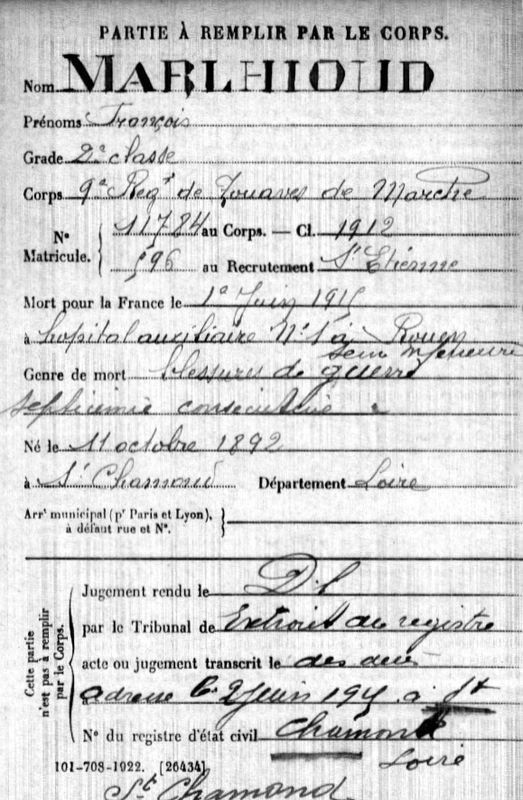 PARTIE À REMPLIR PAR LE CORPS.
Nom MARLHIOUD
Prénoms François
Grade 2e classe
Corps 9e Regt de Zouaves de Marche
N° Matricule. 11784 au Corps. — Cl. 1912
596 au Recrutement St Etienne
Mort pour la France le 1e Juin 1915
à hopital auxiliaire N°1 à Rouen
Seine inferieure
Genre de mort blessures de guerre
septicemie consecutive
Né le 11 octobre 1892
à St Chamond Département Loire
Arrt municipal (pr Paris et Lyon), à défaut rue et N°.
Cette partie n'est pas à remplir par le Corps.
Jugement rendu le
par le Tribunal de Extrait du registre
acte ou jugement transcrit le des
adressé le 2 Juin 1915 à St
N° du registre d'état civil Chamond
Loire
101-708-1922. [26434]
St Chamond